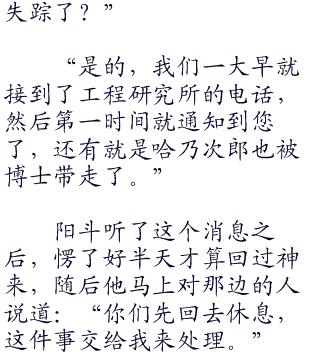 失踪了？”
“是的，我们一大早就
接到了工程研究所的电话，
然后第一时间就通知到您
了，还有就是哈乃次郎也被
博士带走了。”
阳斗听了这个消息之
后，愣了好半天才算回过神
来，随后他马上对那边的人
说道：“你们先回去休息，
这件事交给我来处理。”